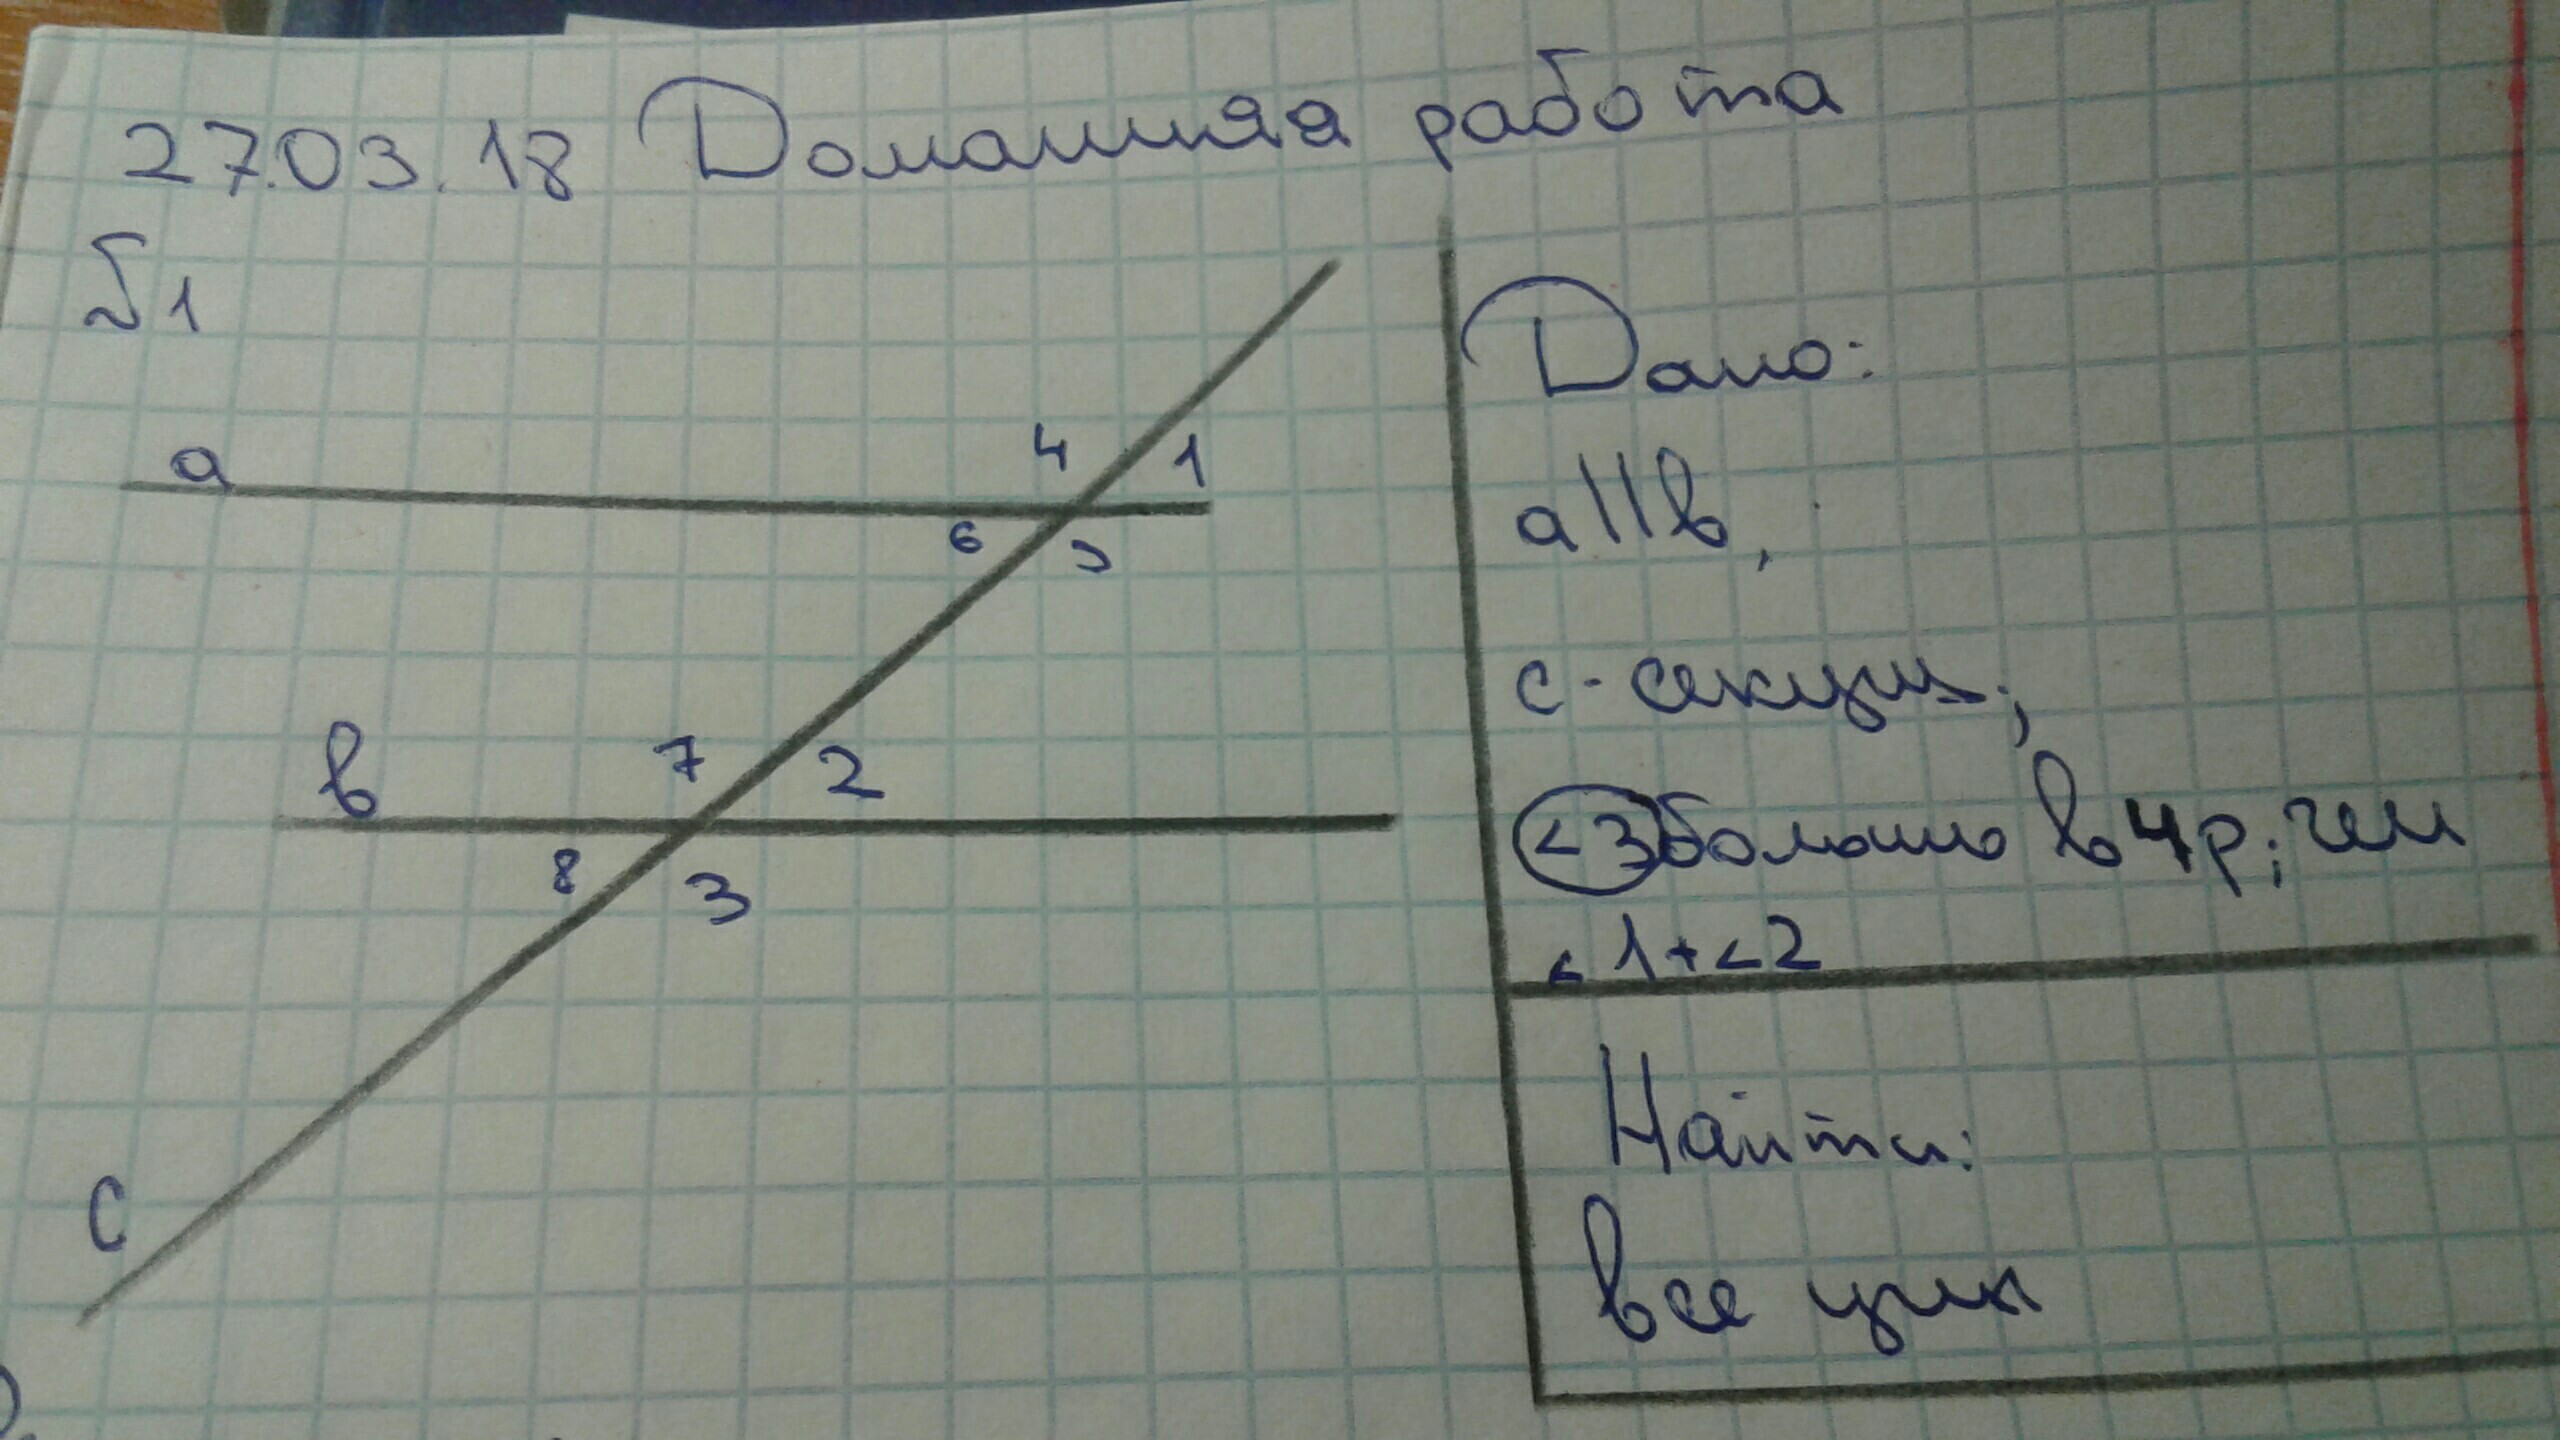 27.03.18 Домашняя работа
№1
a
4 1
6 5
в
7 2
8 3
c
Дано:
a||в,
c-секущ.;
<3 больше в 4р; чем
<1+<2
Найти:
все углы